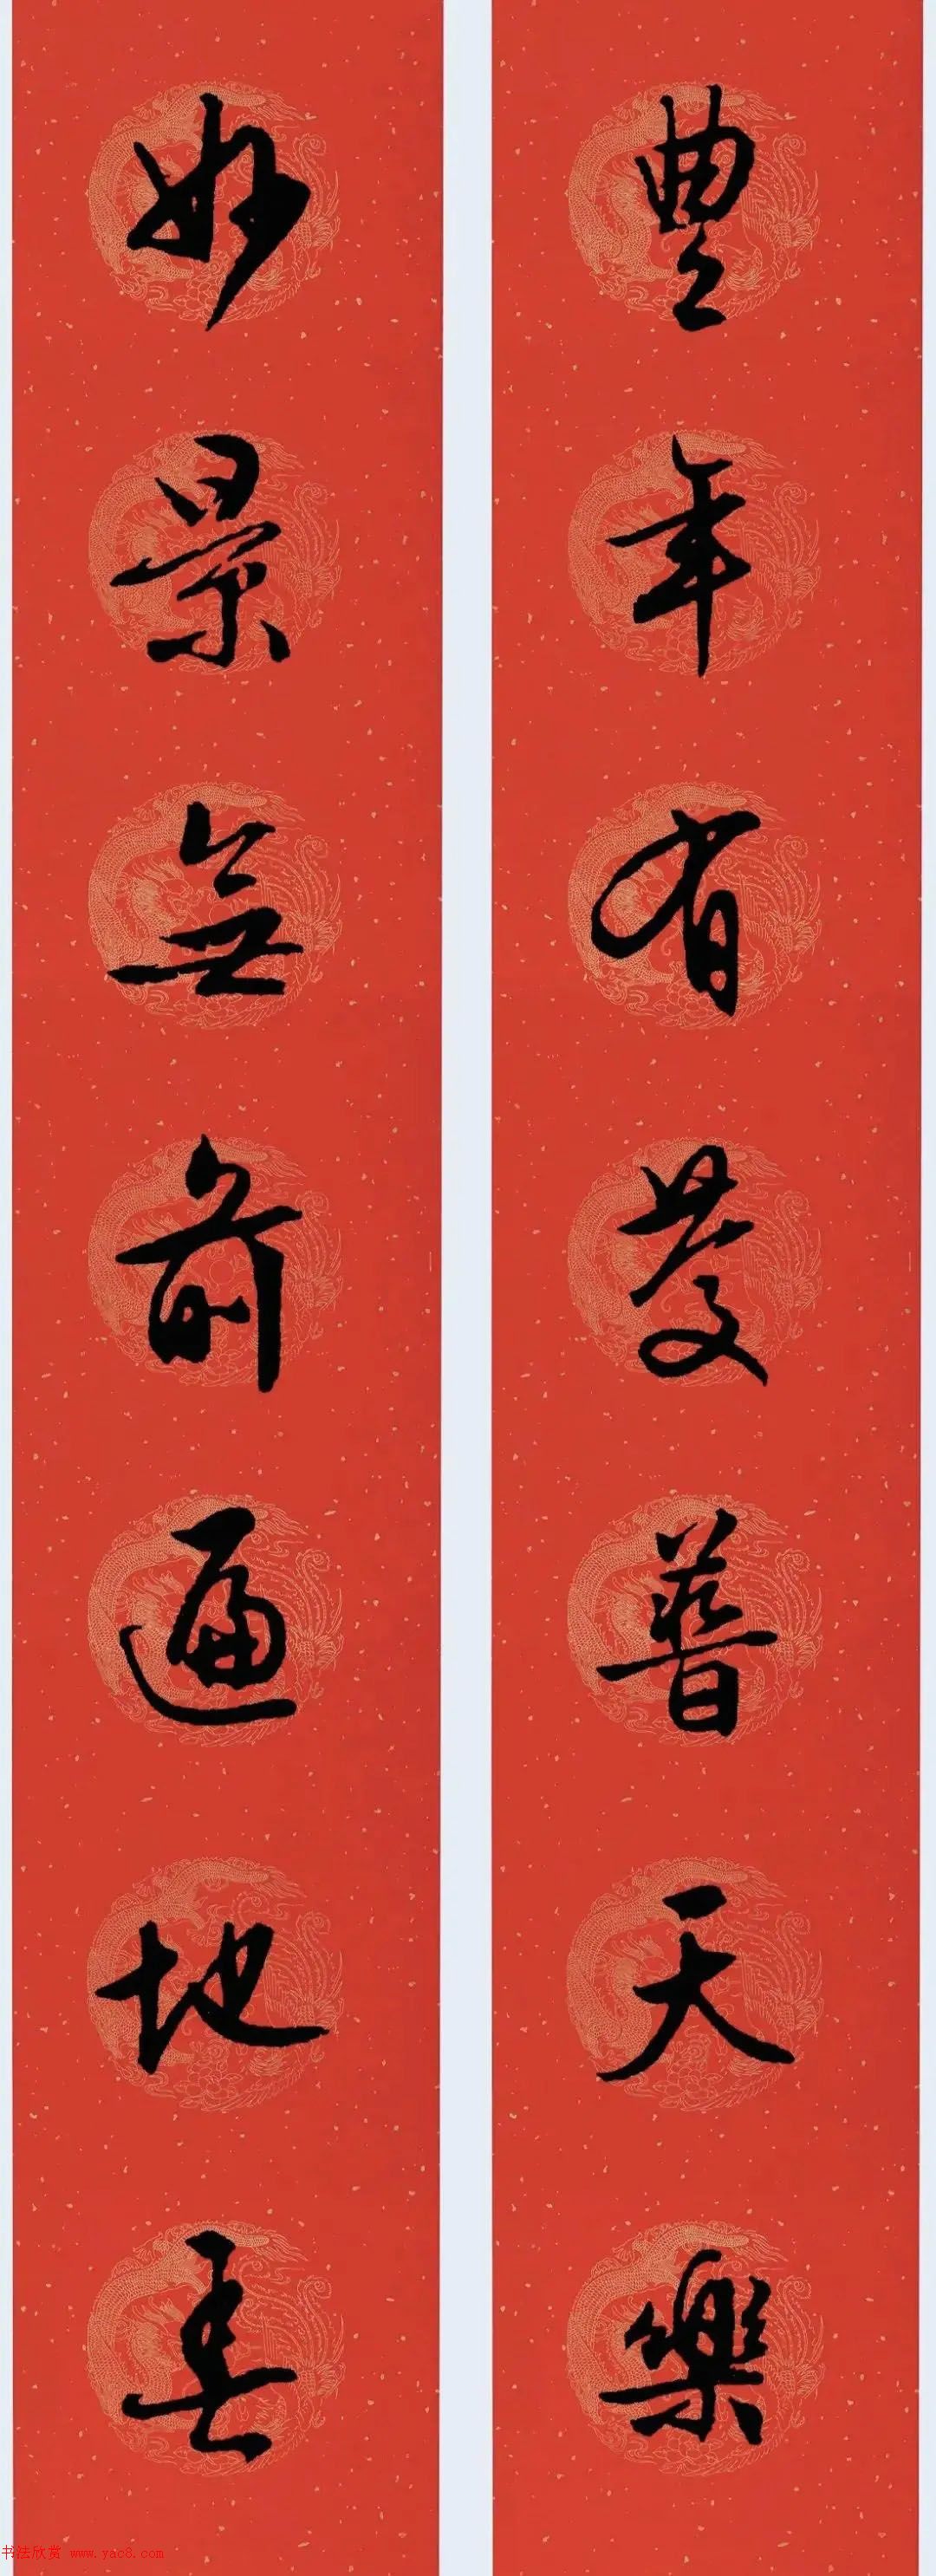 豐年有慶普天樂
妙景無前遍地春
书法欣赏 www.yac8.com